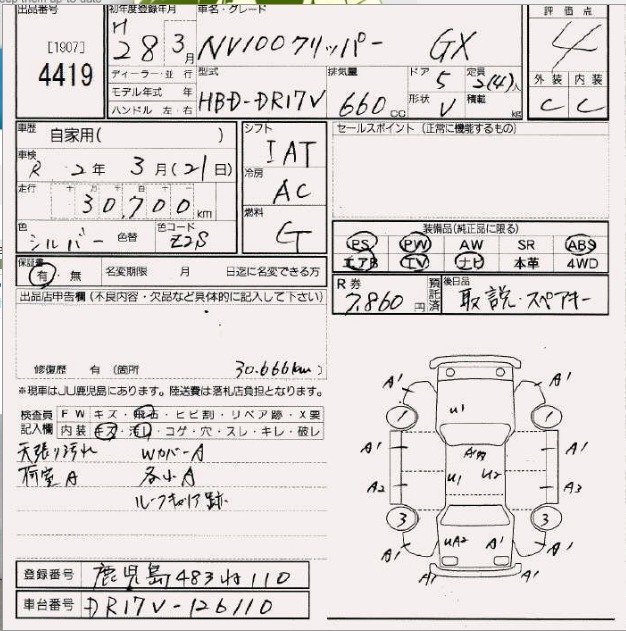 出品番号
[1907]
4419
初年度登録年月
H 28 3月
車名・グレード
NV100クリッパー GX
評価点
4
ディーラー・並行
モデル年式 年
ハンドル 左・右
型式
HBD-DR17V
排気量
660 cc
ドア 5
形状 V
定員 2(4)人
積載 kg
外装 内装
C C
車歴
自家用( )
車検
R 2年 3月(21日)
走行
十 万 千 百 十 一
30,700 km
色
シルバー 色替
色コード
Z2S
シフト
IAT
冷房
AC
燃料
G
セールスポイント (正常に機能するもの)
装備品(純正品に限る)
PS PW AW SR ABS
エアB TV ナビ 本革 4WD
保証書
有・無 名変期限 月 日迄に名変できる方
R券
7,860円
預託済
後日品
取説・スペアキー
出品店申告欄 (不良内容・欠品など具体的に記入して下さい)
修復歴 有 (箇所 30.666km)
※現車はJU鹿児島にあります。陸送費は落札店負担となります。
検査員記入欄
FW キズ・飛石・ヒビ割・リペア跡・X要
内装 キズ・汚れ・コゲ・穴・スレ・キレ・破レ
天張り汚れ WカバーA
荷室A 各小A
ルーフキャリア跡
A' A'
U1
1 1
A' A'
U1 U2
A2 A3
3 3
UA2 A'
A' A'
A' A'
登録番号 鹿児島483ね110
車台番号 DR17V-126110